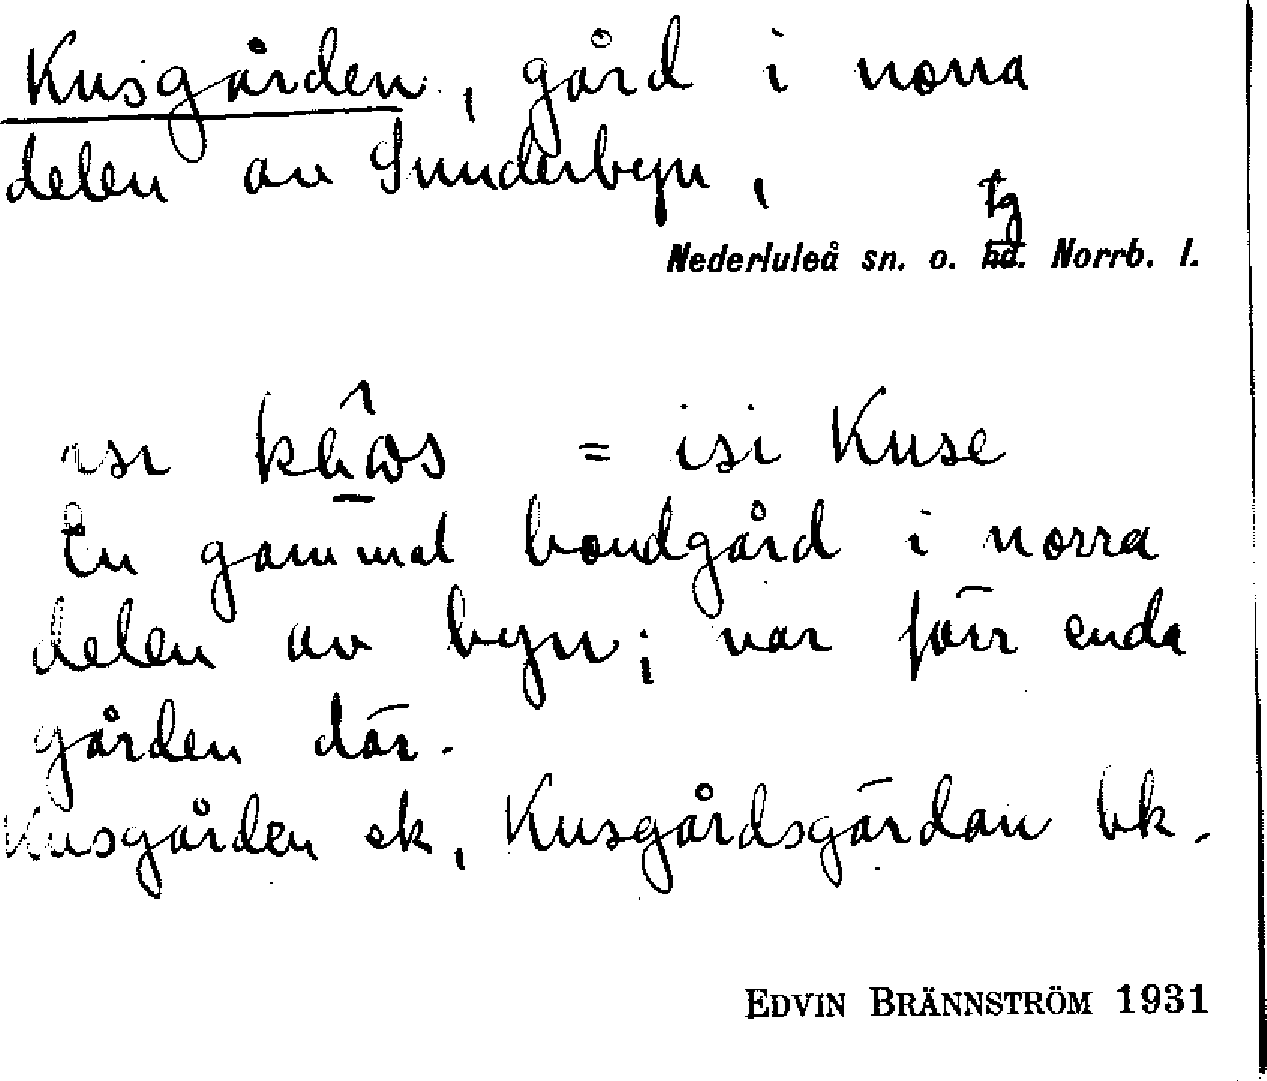 Kusgården, gård i norra
delen av Sunderbyn,
tg
Nederluleå sn. o. hd. Norrb. l.
= isi Kuse
En gammal bondgård i norra
delen av byn; var förr enda
gården där.
Kusgården ek, Kusgårdsgärdan bk.
EDVIN BRÄNNSTRÖM 1931